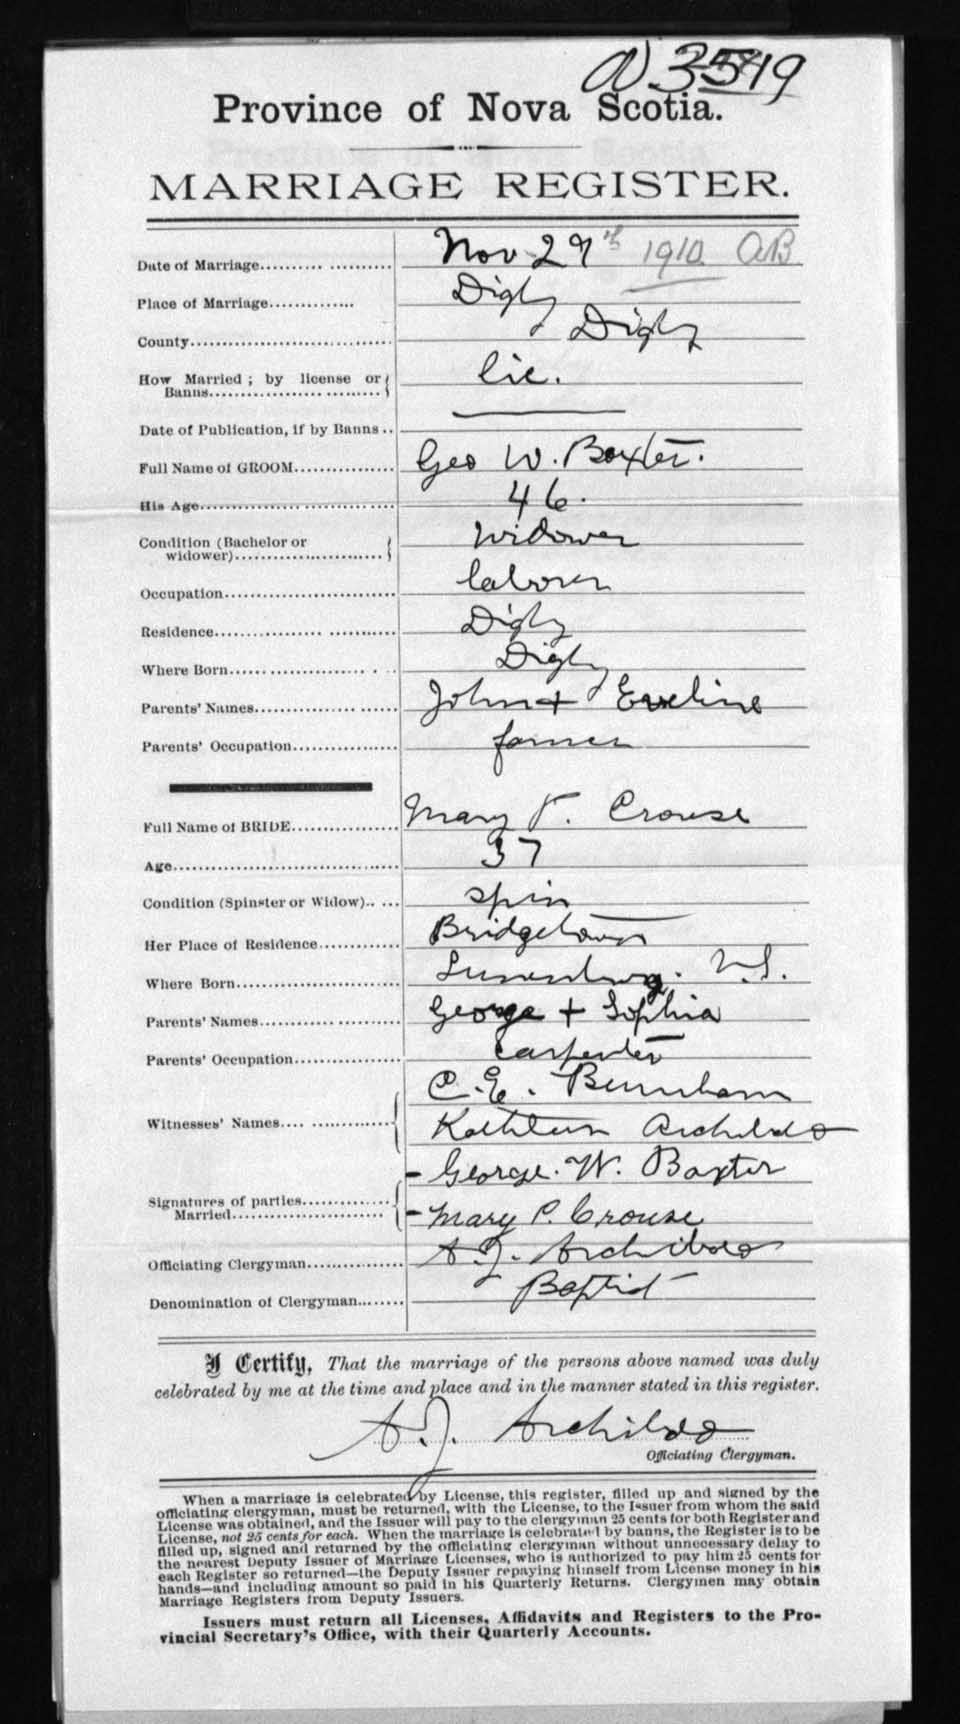 3519
Province of Nova Scotia.
MARRIAGE REGISTER.
Date of Marriage Nov 29th 1910
Place of Marriage Digby
County Digby
How Married; by license or Banns lic.
Date of Publication, if by Banns
Full Name of GROOM Geo W. Baxter.
His Age 46.
Condition (Bachelor or widower) Widower
Occupation laborer
Residence Digby
Where Born Digby
Parents' Names John + Eveline
Parents' Occupation farmer
Full Name of BRIDE Mary P. Crouse
Age 37
Condition (Spinster or Widow) spin
Her Place of Residence Bridgetown
Where Born Lunenburg. N.S.
Parents' Names George + Sophia
Parents' Occupation carpenter
Witnesses' Names C. E. Burnham
Kathleen Archibald
Signatures of parties Married George. W. Baxter
Mary P. Crouse
Officiating Clergyman A. J. Archibald
Denomination of Clergyman Baptist
I Certify, That the marriage of the persons above named was duly
celebrated by me at the time and place and in the manner stated in this register.
A. J. Archibald
Officiating Clergyman.
When a marriage is celebrated by License, this register, filled up and signed by the
officiating clergyman, must be returned, with the License, to the Issuer from whom the said
License was obtained, and the Issuer will pay to the clergyman 25 cents for both Register and
License, not 25 cents for each. When the marriage is celebrated by banns, the Register is to be
filled up, signed and returned by the officiating clergyman without unnecessary delay to
the nearest Deputy Issuer of Marriage Licenses, who is authorized to pay him 25 cents for
each Register so returned—the Deputy Issuer repaying himself from License money in his
hands—and including amount so paid in his Quarterly Returns. Clergymen may obtain
Marriage Registers from Deputy Issuers.
Issuers must return all Licenses, Affidavits and Registers to the Pro-
vincial Secretary's Office, with their Quarterly Accounts.